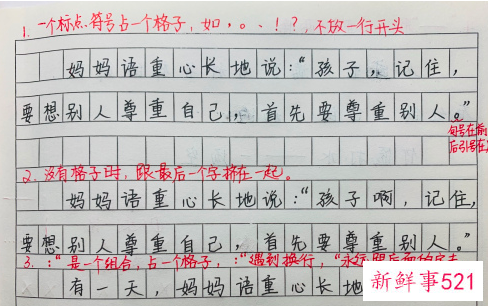 1. 一个标点符号占一个格子，如，。、！？，不放一行开头
妈妈语重心长地说：“孩子，记住，
要想别人尊重自己，首先要尊重别人。”
句号在前
后引号在
2. 没有格子时，跟最后一个字挤在一起。
妈妈语重心长地说：“孩子啊，记住，
要想别人尊重自己，首先要尊重别人。”
3. ：“是一个组合，占一个格子，：“遇到换行，“永远跟后面的字走
有一天，妈妈语重心长地
新鲜事521